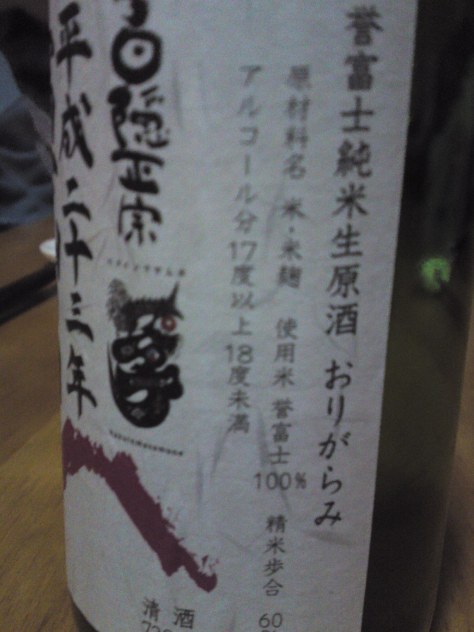 誉富士純米生原酒 おりがらみ
原材料名 米・米麹 使用米 誉富士100% 精米歩合 60
アルコール分17度以上18度未満
白隠正宗
平成二十三年
清酒